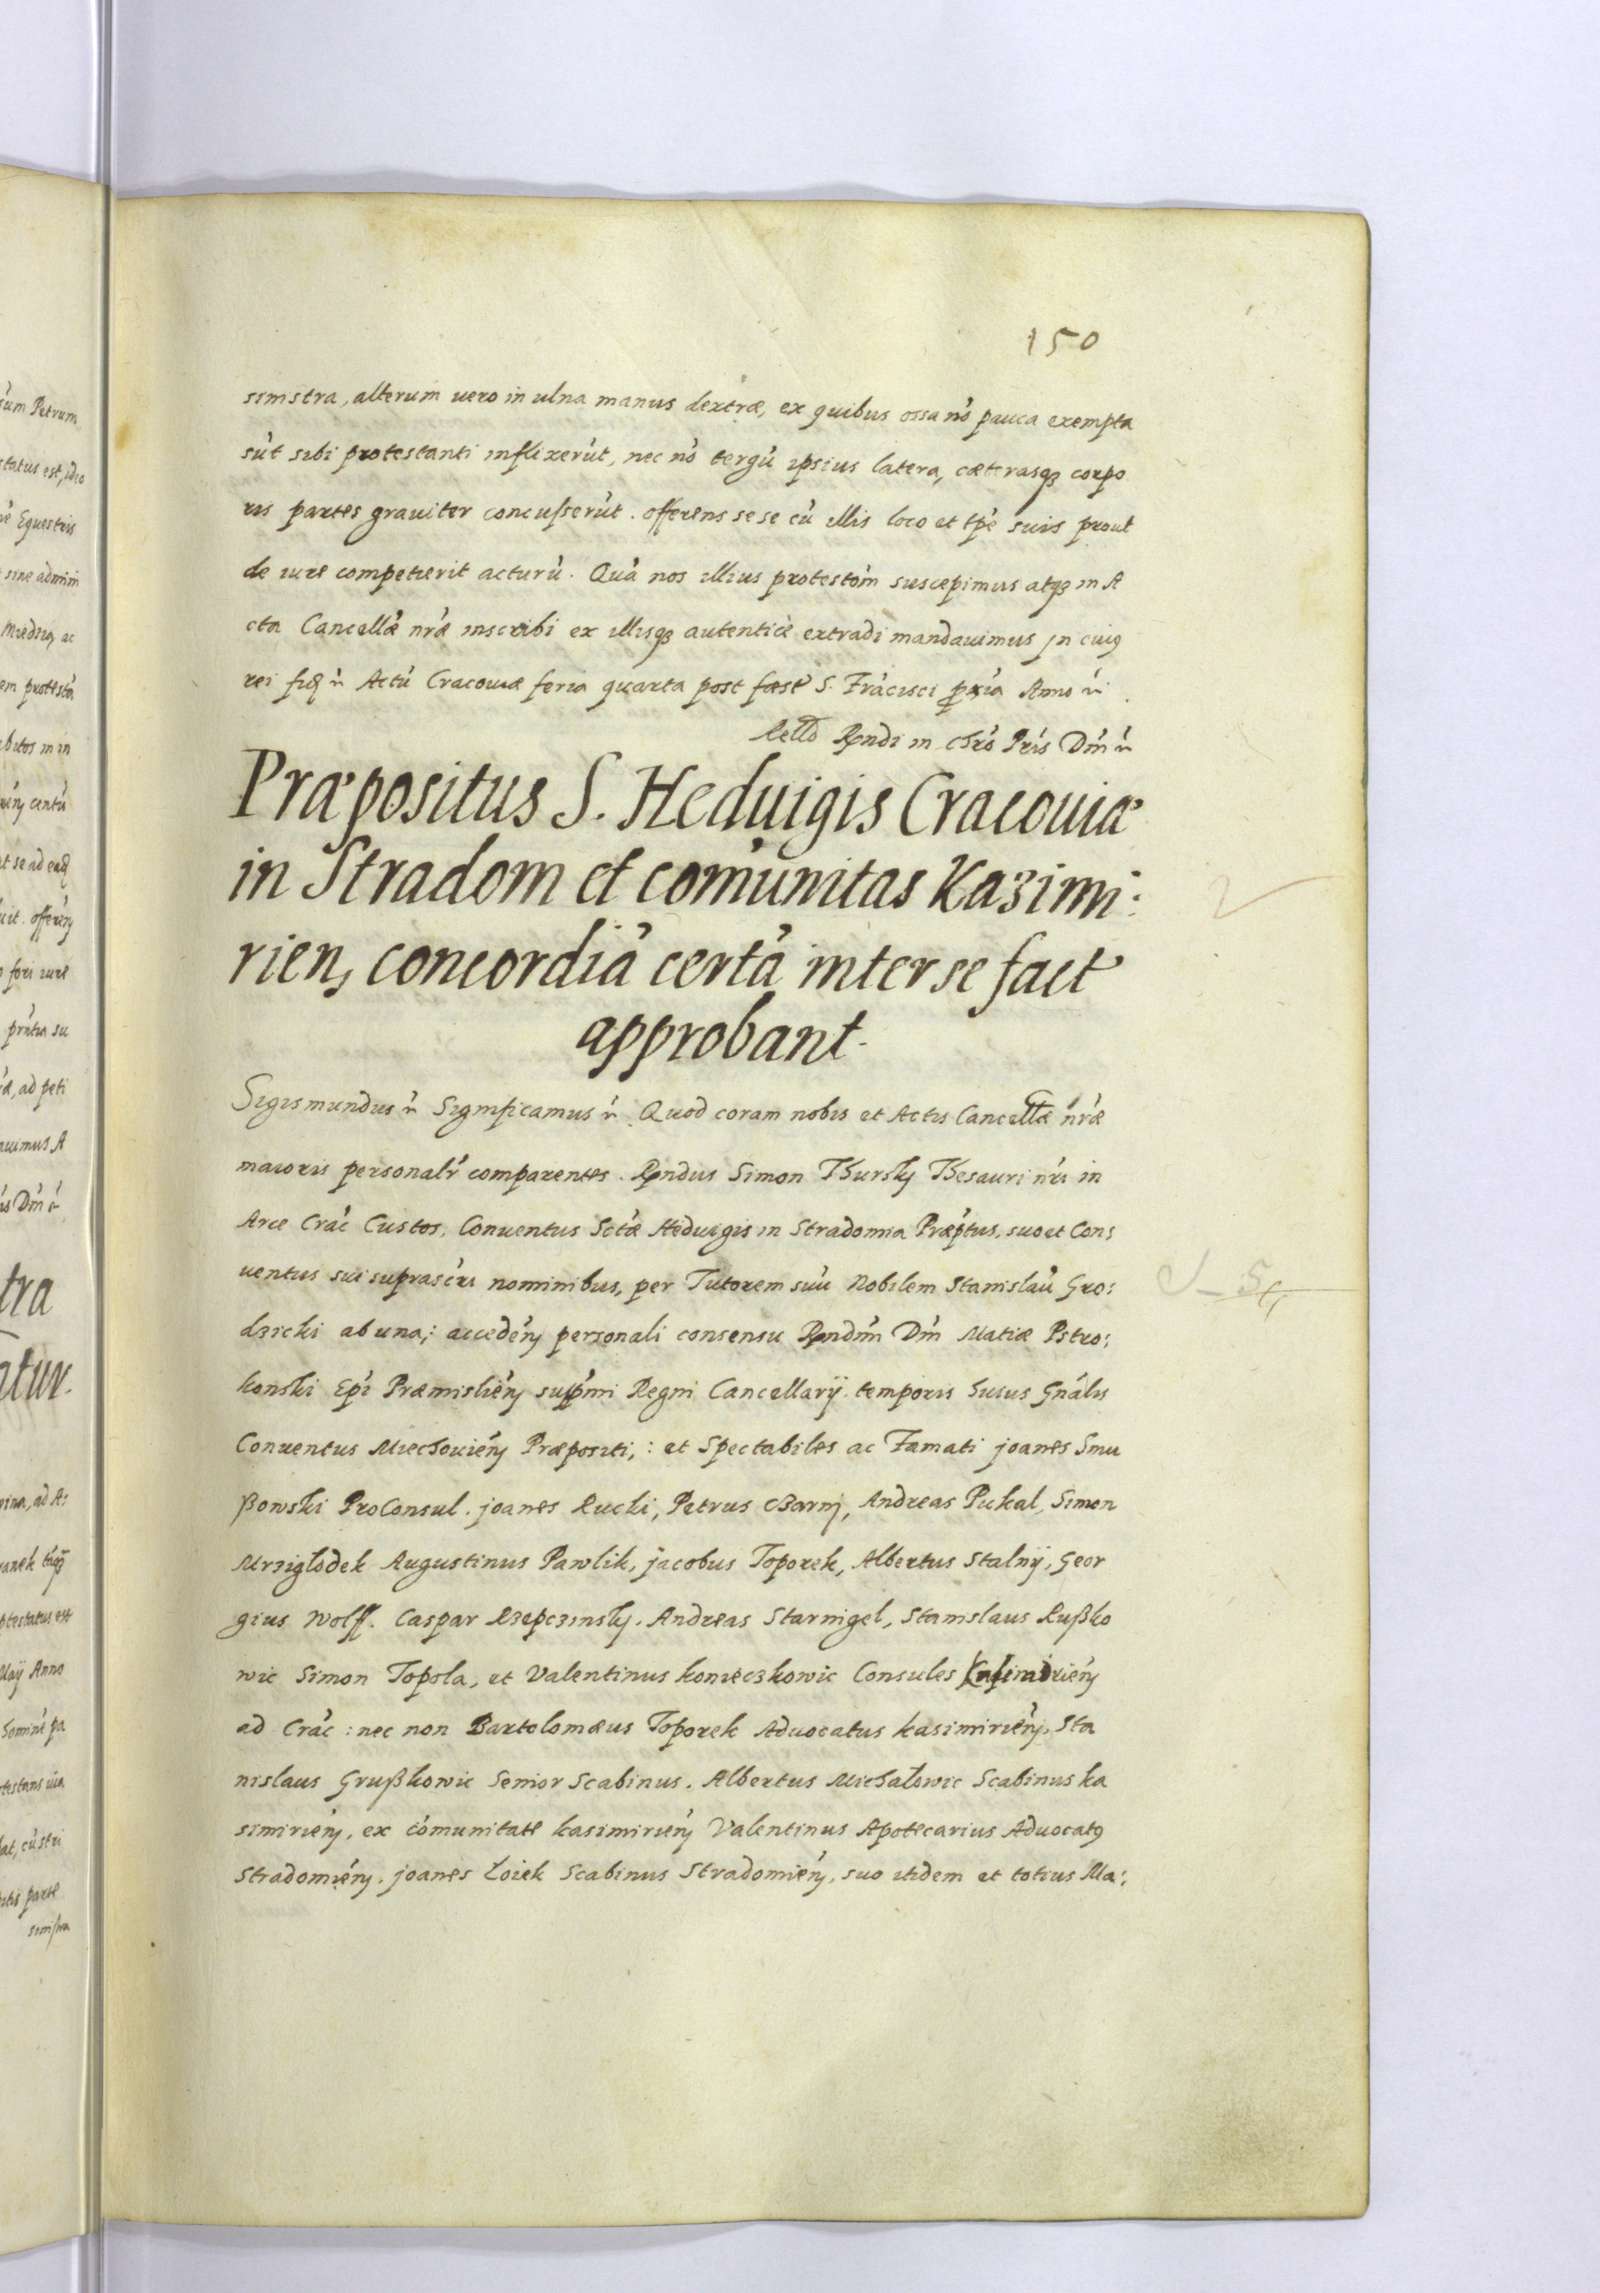 150
sinistra, alterum uero in ulna manus dextræ, ex quibus ossa nō pauca exempta
sūt sibi protestanti inflixerūt, nec nō tergū ipsius latera, cæterasq3 corpo
ris partes grauiter concusserūt. offerens sese cū illis loco et tp̄e suis prout
de iure competierit acturū. Quā nos illius protestom̄ suscepimus atq3 in A
cta Cancellæ nr̄æ inscribi ex illisq3 autenticè extradi mandauimus in cuiꝰ
rei fid Actū Cracouiæ feria quarta post fæst S. Frācisci pxīa Anno
Rello Rndi in Chrō Pr̄is Dm̄
Præpositus S. Heduigis Cracouiæ
in Stradom et comūnitas Kazimi:
rien, concordiā certā inter se fact
approbant.
Sigismundus Significamus Quod coram nobis et Actis Cancellæ nr̄æ
maioris personalr̄ comparentes. Rndus Simon Thursky Thesauri nr̄i in
Arce Crac̄ Custos, Conuentus Sctæ Heduigis in Stradomia Præptus, suo et Con:
uentus sui suprascr̄i nominibus, per Tutorem suū Nobilem Stanislaū Gro:
dzicki ab una; accedēn personali consensu Rndm̄ Dm̄ Matiæ Pstro:
konski Epī Præmisliēn supm̄i Regni Cancellarÿ. temporis huius Gnālis
Conuentus Miechouiēn Præpositi,: et Spectabiles ac Famati joanes Smu
ßowski ProConsul. joanes Rucki, Petrus Czarny, Andreas Pukal, Simon
Mrzigłodek Augustinus Pawlik, jacobus Toporek, Albertus Stalnÿ, Geor
gius Wolff. Caspar Rzepczinsky. Andreas Starnigel, Stanislaus Rußko
wic Simon Topola, et Valentinus konieczkowic Consules Casimiriēn
ad Crac̄: nec non Bartolomæus Toporek Aduocatus kasimiriēn, Sta
nislaus Grußkowic Senior Scabinus. Albertus Michałowic Scabinus ka
simiriēn, ex cōmunitate kasimiriēn Valentinus Apotecarius Aduocatꝰ
Stradomiēn. joanes Łoiek Scabinus Stradomiēn, suo itidem et totius Ma: